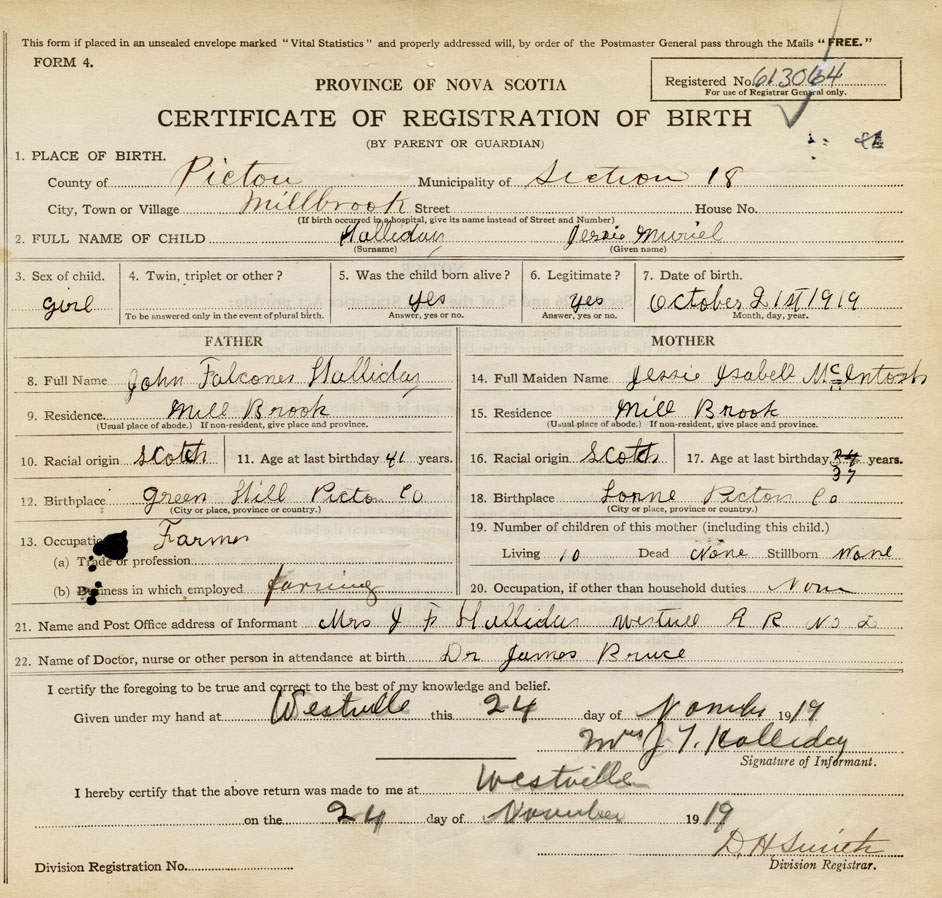 This form if placed in an unsealed envelope marked "Vital Statistics" and properly addressed will, by order of the Postmaster General pass through the Mails "FREE."
FORM 4.
Registered No. 613064
For use of Registrar General only.
PROVINCE OF NOVA SCOTIA
CERTIFICATE OF REGISTRATION OF BIRTH
(BY PARENT OR GUARDIAN)
1. PLACE OF BIRTH.
County of Pictou Municipality of Section 18
City, Town or Village Millbrook Street House No.
(If birth occurred in a hospital, give its name instead of Street and Number)
2. FULL NAME OF CHILD Halliday Jessie Muriel
(Surname) (Given name)
3. Sex of child. 4. Twin, triplet or other? 5. Was the child born alive? 6. Legitimate? 7. Date of birth.
girl yes yes October 21st 1919
To be answered only in the event of plural birth. Answer, yes or no. Answer, yes or no. Month, day, year.
FATHER MOTHER
8. Full Name John Falconer Halliday 14. Full Maiden Name Jessie Isabell McIntosh
9. Residence Mill Brook 15. Residence Mill Brook
(Usual place of abode.) If non-resident, give place and province. (Usual place of abode.) If non-resident, give place and province.
10. Racial origin Scotch 11. Age at last birthday 41 years. 16. Racial origin Scotch 17. Age at last birthday years.
37
12. Birthplace Green Hill Picto Co 18. Birthplace Lorne Picton Co
(City or place, province or country.) (City or place, province or country.)
19. Number of children of this mother (including this child.)
13. Occupation Farmer
Living 10 Dead None Stillborn None
(a) Trade or profession
(b) Business in which employed farming 20. Occupation, if other than household duties None
21. Name and Post Office address of Informant Mrs J F Halliday Westvill R R No 2
22. Name of Doctor, nurse or other person in attendance at birth Dr James Bruce
I certify the foregoing to be true and correct to the best of my knowledge and belief.
Given under my hand at Westville this 24 day of November 1919
Mrs J. F. Halliday
Signature of Informant.
I hereby certify that the above return was made to me at Westville
on the 24 day of November 1919
D. H. Smith
Division Registrar.
Division Registration No.